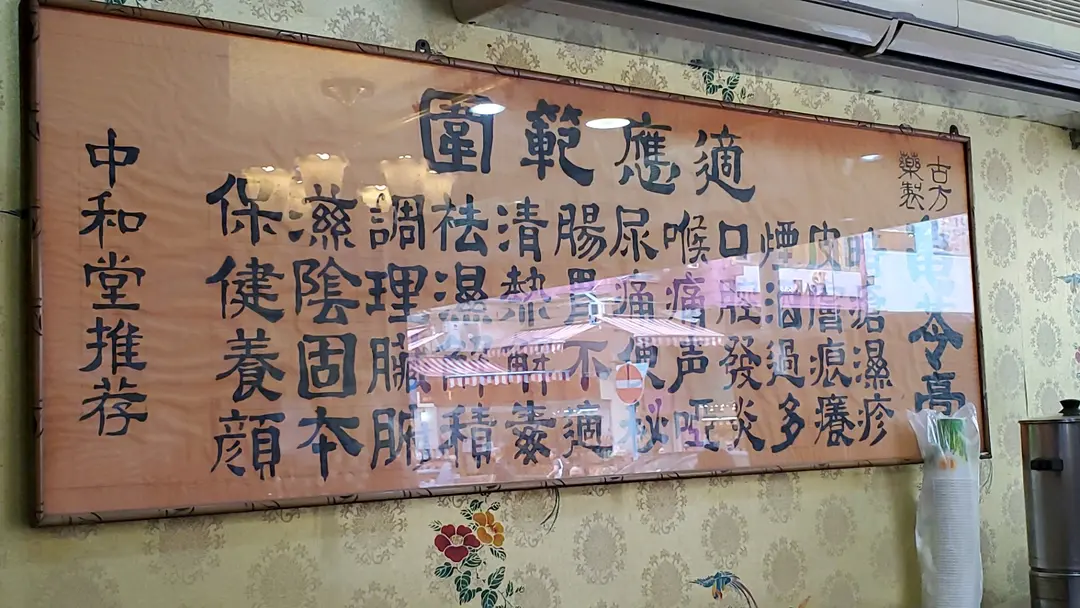 適應範圍
古方
藥製
龜苓膏
暗瘡濕疹
皮膚痕癢
煙酒過多
口腔發炎
喉痛声啞
尿痛便秘
腸胃不適
清熱解毒
祛濕積
調理臟腑
滋陰固本
保健養顏
中和堂推荐